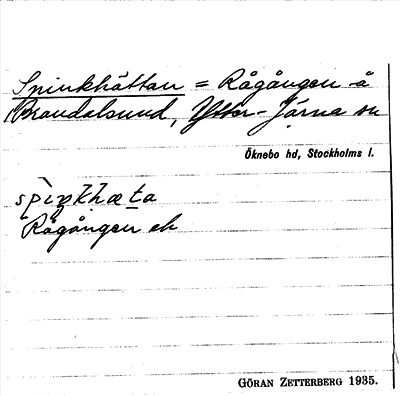 Spinkhättan = Rågången å
Brandalsund, Ytter-Järna sn
Öknebo hd, Stockholms l.
spiŋkhæta
Rågången eh
GÖRAN ZETTERBERG 1935.